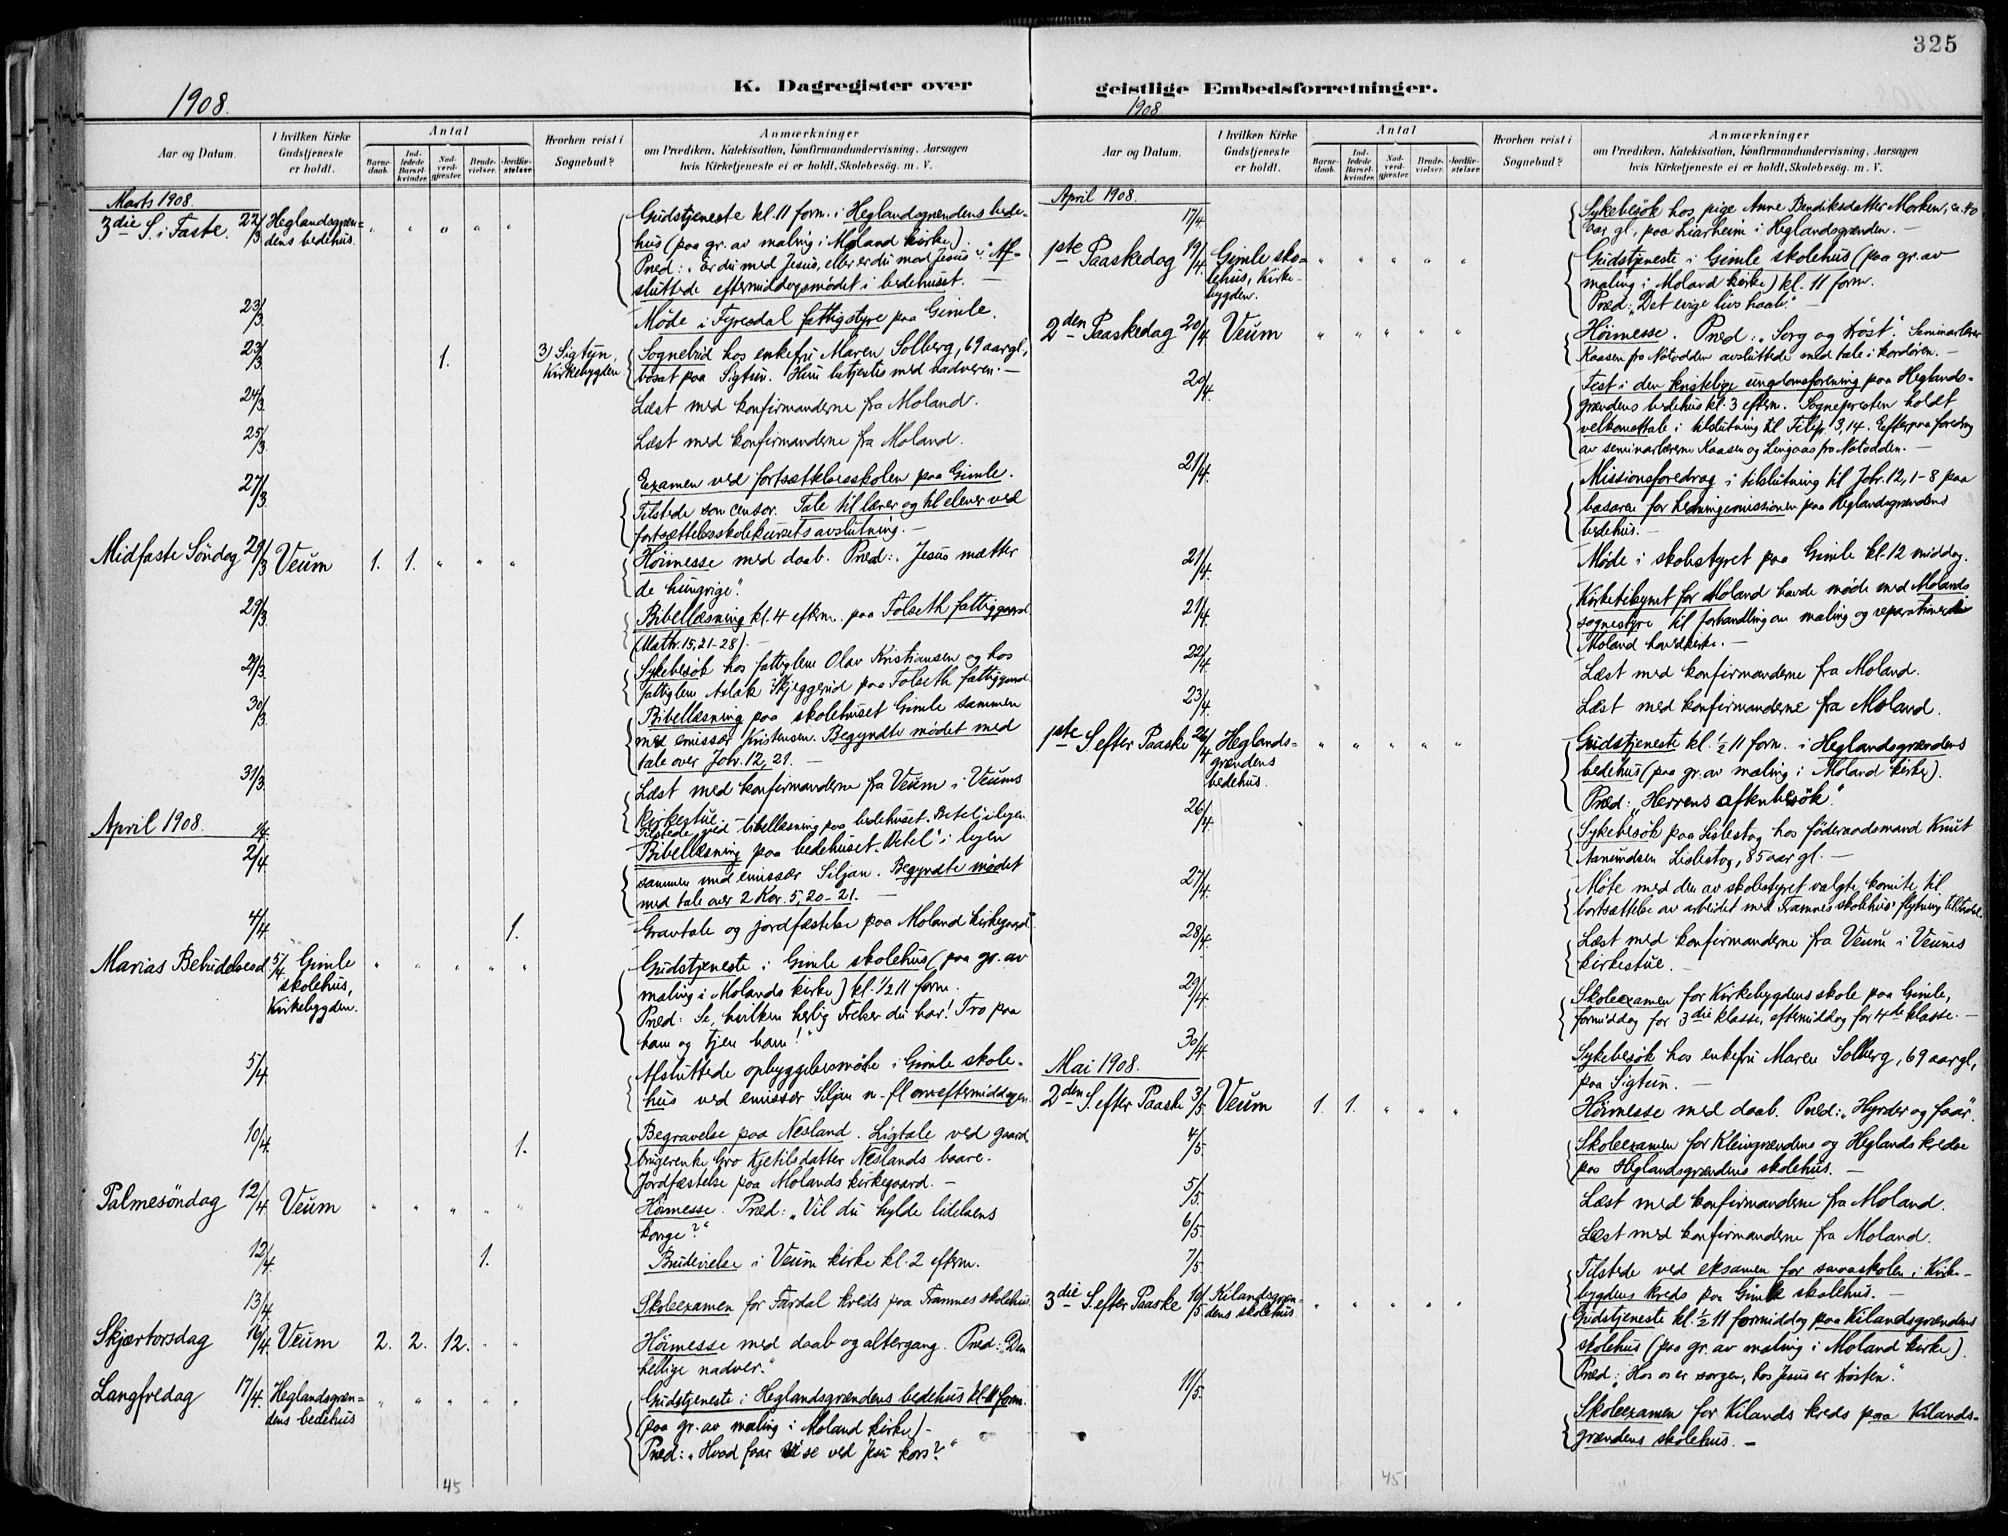 325
K. Dagregister over
geistlige Embedsforretninger.
1908.
1908.
Aar og Datum.
I hvilken Kirke
Gudstjeneste
er holdt.
Antal
Barne-
daab.
Ind-
ledede
Barsel-
kvinder.
Nad-
verd-
gjæster.
Brude-
vielser.
Jordfæ-
stelser.
Hvorhen reist i
Sognebud?
Anmærkninger
om Prædiken, Katekisation, Konfirmandundervisning, Aarsagen
hvis Kirketjeneste ei er holdt, Skolebesøg. m. V.
Marts 1908.
3die S. i Faste. 22/3 Heglandsgræn-
dens bedehus. " " " " "
Gudstjeneste kl. 11 form. i Heglandsgrændens bede-
hus (paa gr. av maling i Moland kirke).
Præd: „Er du med Jesus, eller er du mod Jesus?" Af-
sluttede eftermiddagsmødet i bedehuset. —
23/3 Møde i Fyresdal fattigstyre paa Gimle.
23/3 1. 3) Sigtun, Sognebud hos enkefru Maren Solberg, 69 aar gl.,
Kirkebygden bosat paa Sigtun. Hun betjentes med nadveren. —
24/3 Læst med konfirmanderne fra Moland.
25/3 Læst med konfirmanderne fra Moland.
27/3 Examen ved fortsættelsesskolen paa Gimle.
Tilstede som censor. Tale til lærer og til elever ved
fortsættelsesskolekursets avslutning. —
Midfaste Søndag 29/3 Veum 1. 1. " " " Høimesse med daab. Præd: „Jesus mætter
de hungrige".
29/3 Bibellæsning kl. 4 efterm. paa Folseth fattiggaard
(Math. 15, 21-28). —
29/3 Sykebesøk hos fattiglem Olav Kristiansen og hos
fattiglem Aslak Skjeggerud paa Folseth fattiggaard
30/3 Bibellæsning paa skolehuset Gimle sammen
med emissær Kristensen. Begyndte mødet med
tale over Joh. 12, 21. —
31/3 Læst med konfirmanderne fra Veum i Veums
kirkestue. —
April 1908.
1/4 Tilstede ved bibellæsning paa bedehuset „Betel" i lejen
2/4 Bibellæsning paa bedehuset „Betel" i lejen
sammen med emissær Siljan. Begyndte mødet
med tale over 2 Kor. 5, 20-21. —
4/4 1. Gravtale og jordfæstelse paa Moland kirkegaard
Marias Bebudelsesd. 5/4 Gimle " " " " " Gudstjeneste i Gimle skolehus (paa gr. av
skolehus, maling i Molands kirke) kl. 1/2 11 form.
Kirkebygden. Præd: Se, hvilken herlig Frelser du har! Tro paa
ham og tjen ham!"
5/4 Afsluttede opbyggelsesmøte i Gimle skole-
hus ved emissær Siljan m. fl om eftermiddagen.
10/4 1. Begravelse paa Nesland. Ligtale ved gaard
brugerenke Gro Kjetilsdatter Neslands baare.
Jordfæstelse paa Molands kirkegaard. —
Palmesøndag 12/4 Veum " " " " " Høimesse. Præd: „Vil du hylde lidelsens
konge?"
12/4 1. Brudevielse i Veum kirke kl. 2 efterm.
13/4 Skoleexamen for Fardal kreds paa Framnes skolehus
Skjærtorsdag 16/4 Veum 2. 2. 12. " " Høimesse med daab og altergang. Præd: „Den
hellige nadver."
Langfredag 17/4. Heglandsgræn- " " " " " Gudstjeneste i Heglandsgrændens bedehus kl. 11 form.
dens bedehus (paa gr. av maling i Moland kirke) -
Præd: „Hvad faar vi se ved Jesu kors?"
45
Aar og Datum.
I hvilken Kirke
Gudstjeneste
er holdt.
Antal
Barne-
daab.
Ind-
ledede
Barsel-
kvinder.
Nad-
verd-
gjæster.
Brude-
vielser.
Jordfæ-
stelser.
Hvorhen reist i
Sognebud?
Anmærkninger
om Prædiken, Katekisation, Konfirmandundervisning, Aarsagen
hvis Kirketjeneste ei er holdt, Skolebesøg. m. V.
April 1908.
17/4. Sykebesøk hos pige Anne Bendiksdatter Morken, ca. 40
aar gl., paa Liarheim i Heglandsgrænden. —
1ste Paaskedag 19/4. Gimle sko- " " " " " Gudstjeneste i Gimle skolehus (paa gr. av
lehus, Kirke- maling i Moland kirke) kl. 11 form.
bygden. Præd: „Det evige livs haab". —
2den Paaskedag 20/4. Veum " " " " " Høimesse. Præd: „Sorg og trøst". Seminarlærer
Kaasen fra Notodden avsluttede med tale i kordøren. —
20/4. Fest i den kristelige ungdomsforening paa Heglands-
grændens bedehus kl. 3 efterm. Sognepresten holdt
velkomsttale i tilslutning til Filip. 3, 14. Efterpaa foredrag
av seminarlærerne Kaasen og Lingaas fra Notodden. —
21/4. Missionsforedrag i tilslutning til Joh. 12, 1-8 paa
basaren for hedningemissionen paa Heglandsgrændens
bedehus. —
21/4. Møde i skolestyret paa Gimle kl. 12 middag.
21/4. Kirketilsynet for Moland havde møde med Molands
sognestyre til forhandling om maling og reparation av
Moland hovedkirke. —
22/4 Læst med konfirmanderne fra Moland.
23/4. Læst med konfirmanderne fra Moland.
1ste S. efter Paaske 26/4 Heglands- " " " " " Gudstjeneste kl. 1/2 11 form. i Heglandsgrændens
grændens bedehus (paa gr. av maling i Moland kirke).
bedehus. Præd: „Herrens aftenbesøk".
26/4. Sykebesøk paa Lislestog hos føderaadsmand Knut
Aanundsen Lislestog, 85 aar gl. —
27/4. Møte med den av skolestyret valgte komite til
fortsættelse av arbeidet med Framnes skolehus' flytning
28/4. Læst med konfirmanderne fra Veum i Veums
kirkestue. —
29/4. Skoleexamen for Kirkebygdens skole paa Gimle,
formiddag for 3die klasse, eftermiddag for 4de klasse. —
30/4. Sykebesøk hos enkefru Maren Solberg, 69 aar gl.,
paa Sigtun. —
Mai 1908.
2den S. efter Paaske 3/5. Veum 1. 1. " " " Høimesse med daab. Præd: „Hyrder og faar".
4/5. Skoleexamen for Kleivgrændens og Heglands kredse
paa Heglandsgrændens skolehus. —
5/5. Læst med konfirmanderne fra Moland.
6/5. Læst med konfirmanderne fra Moland.
7/5. Tilstede ved eksamen for smaaskolen i Kirke-
bygdens kreds paa Gimle skolehus. —
3die S. efter Paaske 10/5 Kilandsgræn- " " " " " Gudstjeneste kl. 1/2 11 formiddag paa Kilandsgrændens
dens skolehus. skolehus (paa gr. av maling i Moland kirke).
Præd: „Hos os er sorgen, hos Jesus er trøsten."
11/5. Skoleexamen for Kilands kreds paa Kilands-
grændens skolehus. —
45